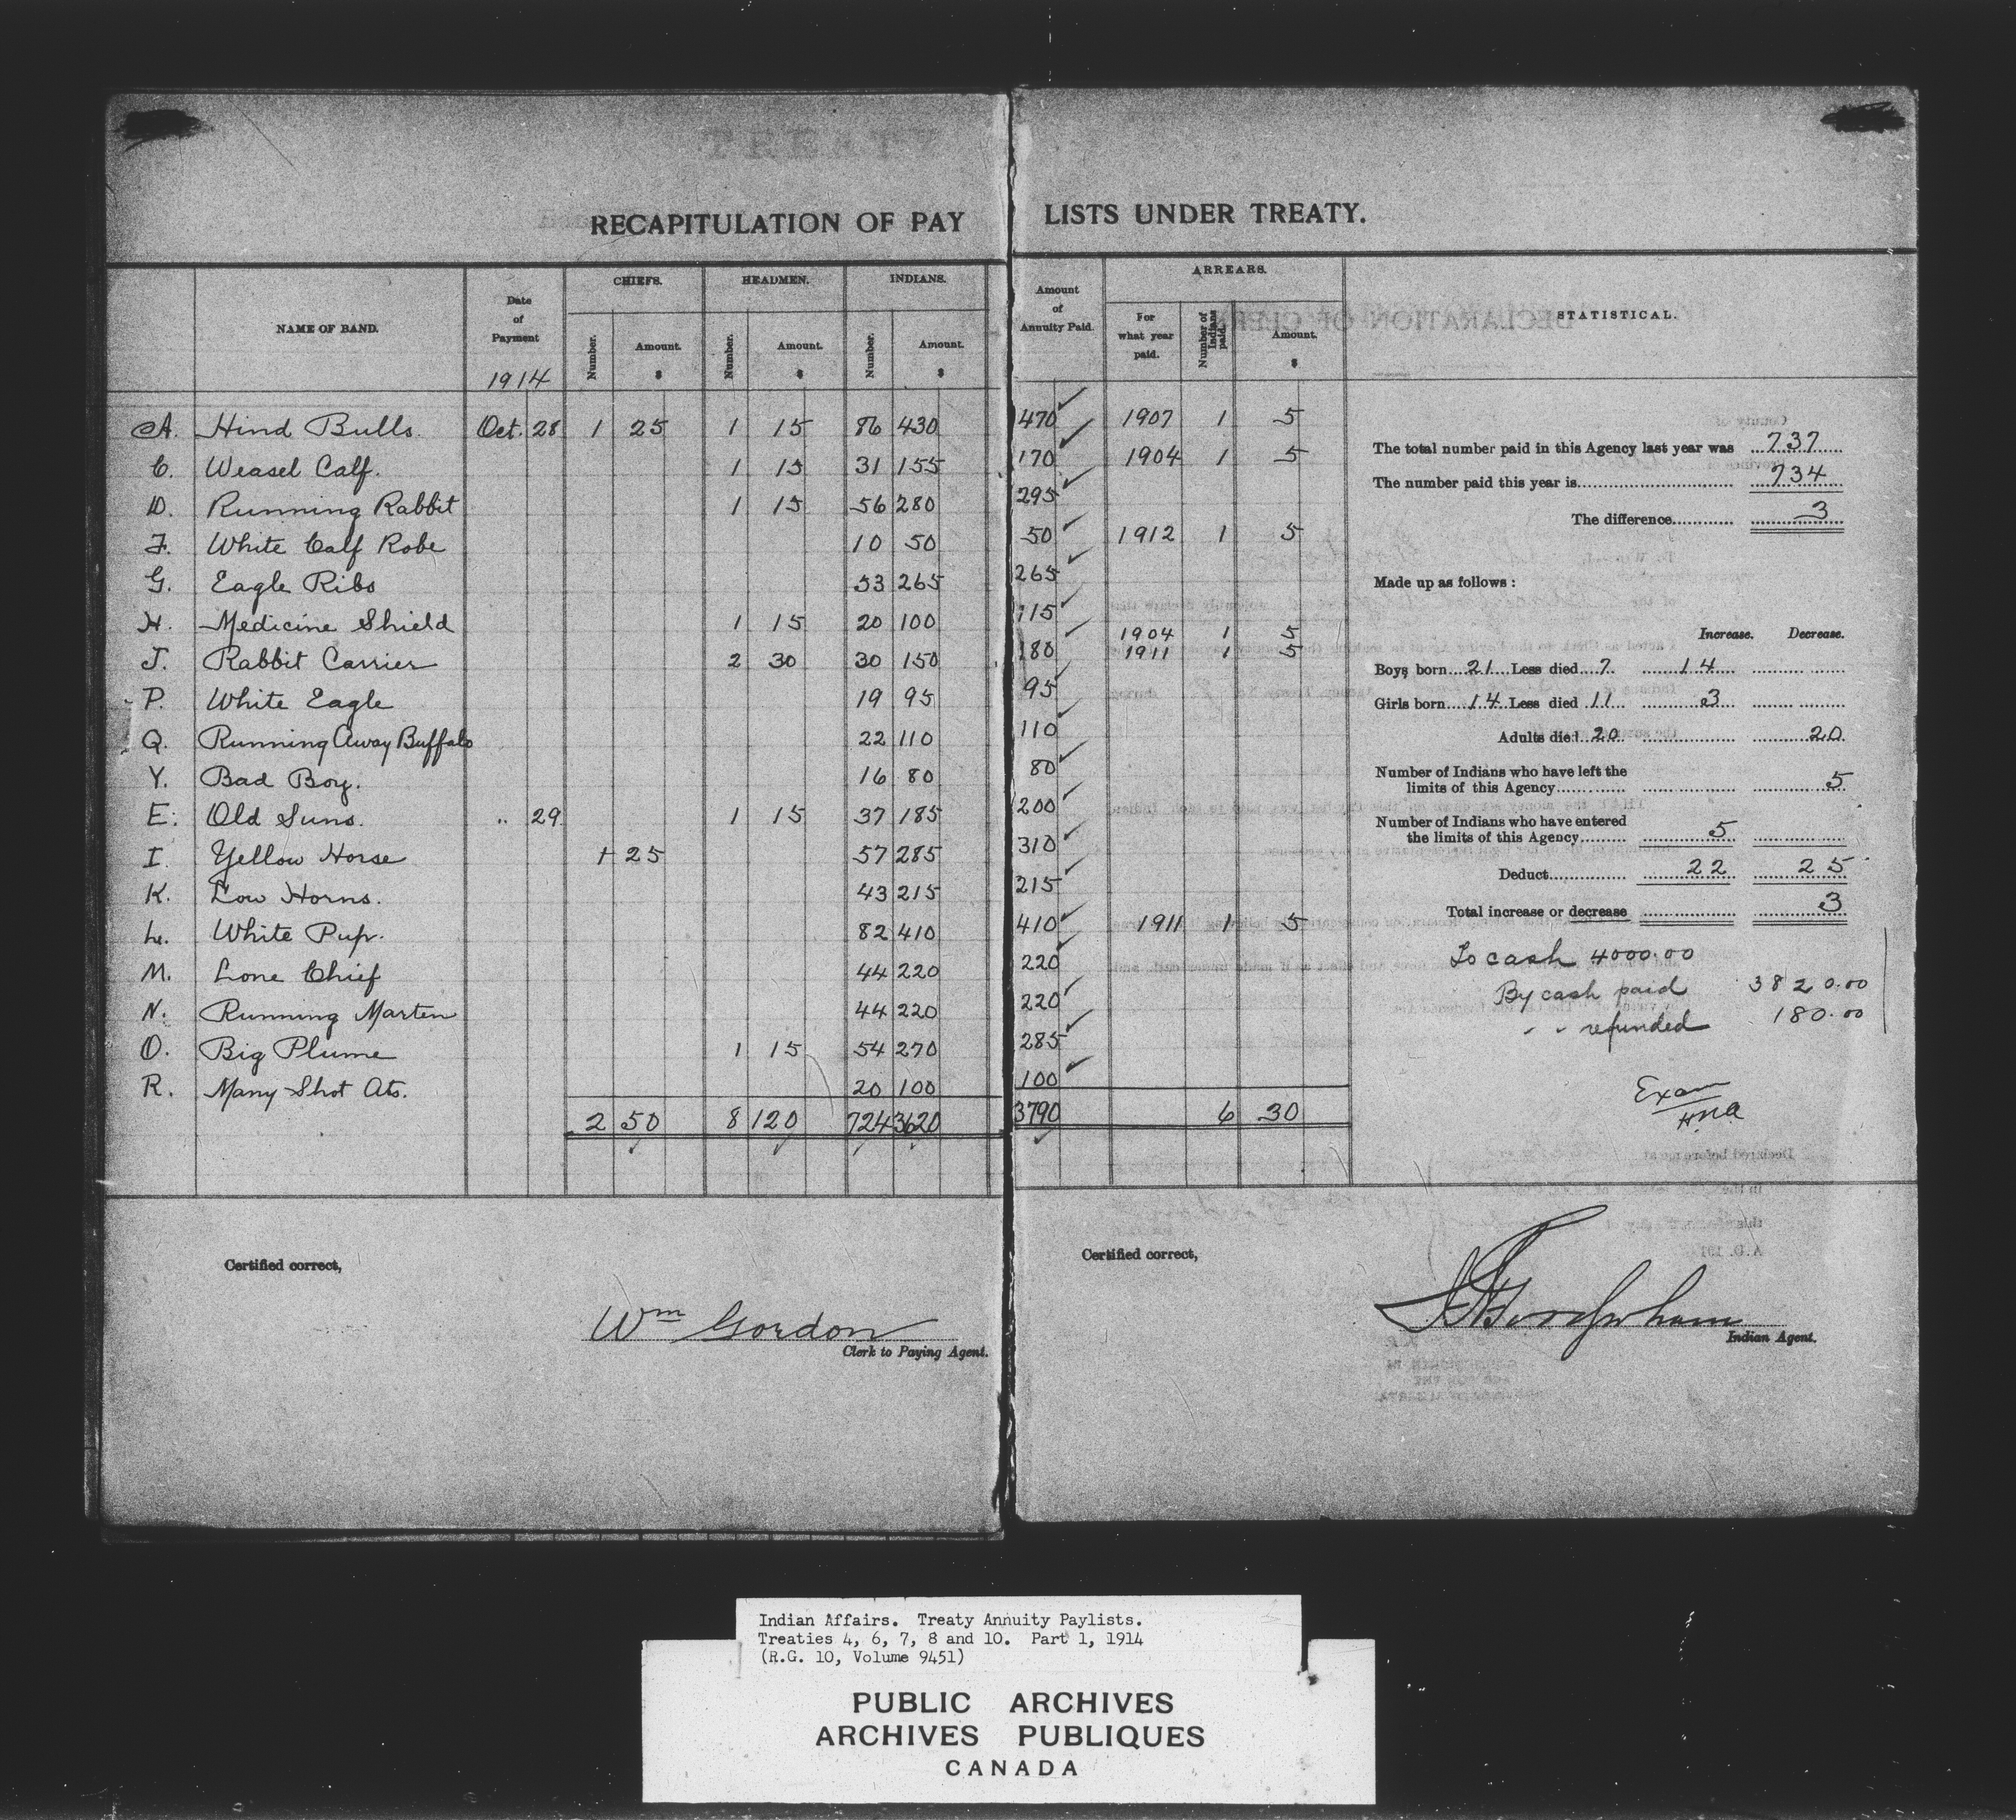 RECAPITULATION OF PAY LISTS UNDER TREATY.
NAME OF BAND. Date of Payment 1914 CHIEFS. Number. Amount. $ HEADMEN. Number. Amount. $ INDIANS. Number. Amount. $ Amount of Annuity Paid. ARREARS. For what year paid. Number of Indians paid. Amount. $ STATISTICAL.
A. Hind Bulls. Oct. 28 1 25 1 15 86 430 470 1907 1 5
C. Weasel Calf. 1 15 31 155 170 1904 1 5
D. Running Rabbit 1 15 56 280 295
F. White Calf Robe 10 50 50 1912 1 5
G. Eagle Ribs 53 265 265
H. Medicine Shield 1 15 20 100 115
J. Rabbit Carrier 2 30 30 150 180 1904 1 5
1911 1 5
P. White Eagle 19 95 95
Q. Running Away Buffalo 22 110 110
Y. Bad Boy. 16 80 80
E. Old Suns. " 29 1 15 37 185 200
I. Yellow Horse 1 25 57 285 310
K. Low Horns. 43 215 215
L. White Pup. 82 410 410 1911 1 5
M. Lone Chief 44 220 220
N. Running Marten 44 220 220
O. Big Plume 1 15 54 270 285
R. Many Shot Ats. 20 100 100
2 50 8 120 724 3620 3790 6 30
The total number paid in this Agency last year was 737
The number paid this year is 734
The difference 3
Made up as follows :
Increase. Decrease.
Boys born 21 Less died 7. 14
Girls born 14 Less died 11 3
Adults died 20 20
Number of Indians who have left the
limits of this Agency 5
Number of Indians who have entered
the limits of this Agency 5
Deduct 22 25
Total increase or decrease 3
To cash 4000.00
By cash paid 3820.00
" " refunded 180.00
Exam
H.M.A.
Certified correct,
Wm Gordon
Clerk to Paying Agent.
Certified correct,
Indian Agent.
Indian Affairs. Treaty Annuity Paylists.
Treaties 4, 6, 7, 8 and 10. Part 1, 1914
(R.G. 10, Volume 9451)
PUBLIC ARCHIVES
ARCHIVES PUBLIQUES
CANADA